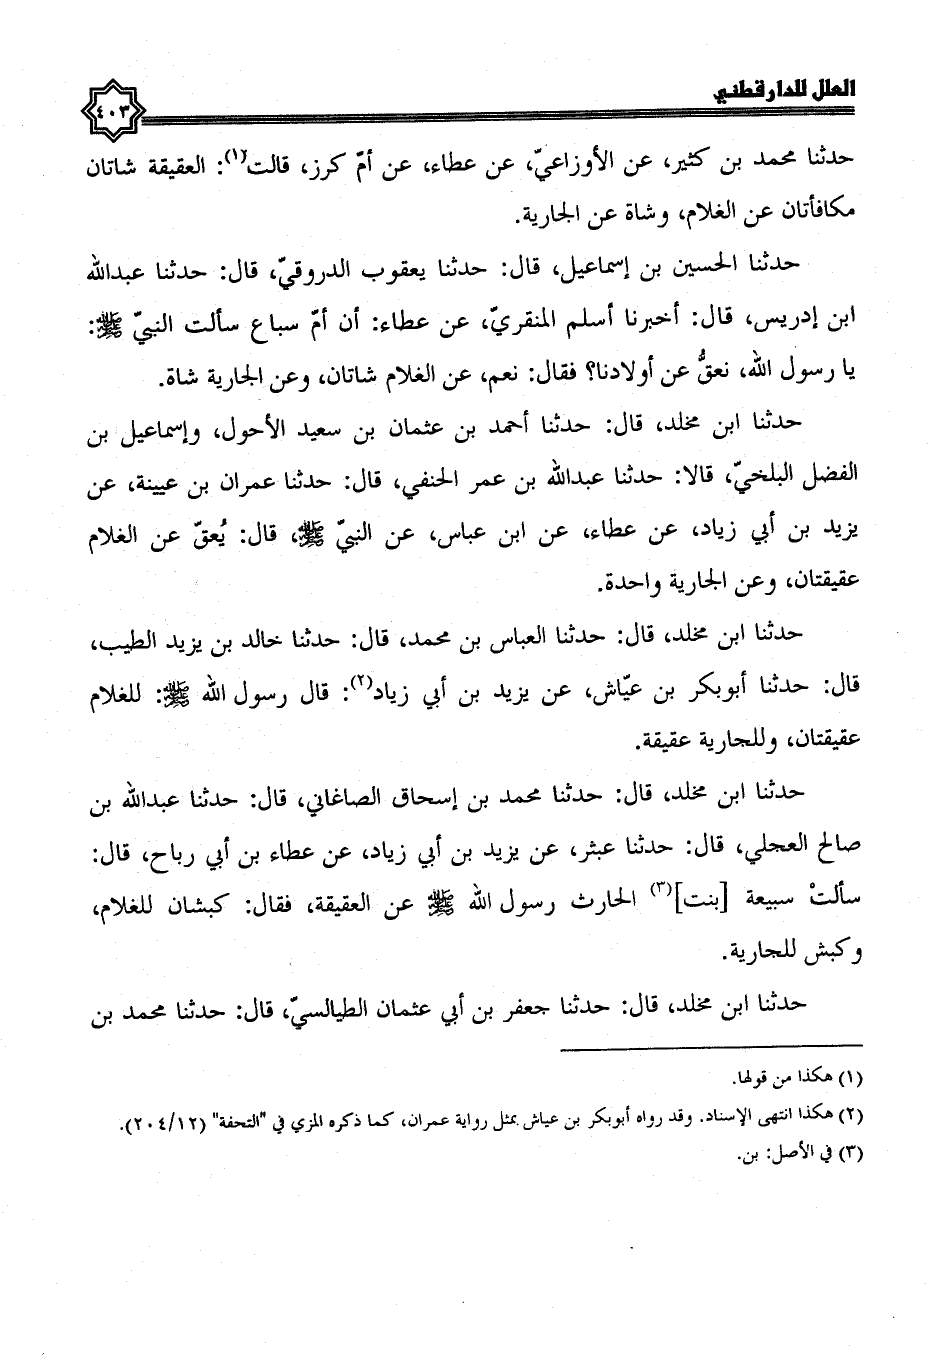 العلل للدارقطني
٤٠٣
حدثنا محمد بن كثير، عن الأوزاعيّ، عن عطاء، عن أمّ كرز، قالت(١): العقيقة شاتان
مكافأتان عن الغلام، وشاة عن الجارية.
حدثنا الحسين بن إسماعيل، قال: حدثنا يعقوب الدروقيّ، قال: حدثنا عبدالله
ابن إدريس، قال: أخبرنا أسلم المنقريّ، عن عطاء: أن أمّ سباع سألت النبيّ ﷺ:
يا رسول الله، نعقُّ عن أولادنا؟ فقال: نعم، عن الغلام شاتان، وعن الجارية شاة.
حدثنا ابن مخلد، قال: حدثنا أحمد بن عثمان بن سعيد الأحول، وإسماعيل بن
الفضل البلخيّ، قالا: حدثنا عبدالله بن عمر الحنفي، قال: حدثنا عمران بن عيينة، عن
يزيد بن أبي زياد، عن عطاء، عن ابن عباس، عن النبيّ ﷺ، قال: يُعقّ عن الغلام
عقيقتان، وعن الجارية واحدة.
حدثنا ابن مخلد، قال: حدثنا العباس بن محمد، قال: حدثنا خالد بن يزيد الطيب،
قال: حدثنا أبوبكر بن عيّاش، عن يزيد بن أبي زياد(٢): قال رسول الله ﷺ: للغلام
عقيقتان، وللجارية عقيقة.
حدثنا ابن مخلد، قال: حدثنا محمد بن إسحاق الصاغاني، قال: حدثنا عبدالله بن
صالح العجلي، قال: حدثنا عبثر، عن يزيد بن أبي زياد، عن عطاء بن أبي رباح، قال:
سألتْ سبيعة [بنت](٣) الحارث رسول الله ﷺ عن العقيقة، فقال: كبشان للغلام،
وكبش للجارية.
حدثنا ابن مخلد، قال: حدثنا جعفر بن أبي عثمان الطيالسيّ، قال: حدثنا محمد بن
(١) هكذا من قولها.
(٢) هكذا انتهى الإسناد. وقد رواه أبوبكر بن عياش بمثل رواية عمران، كما ذكره المزي في "التحفة" (٢٠٤/١٢).
(٣) في الأصل: بن.